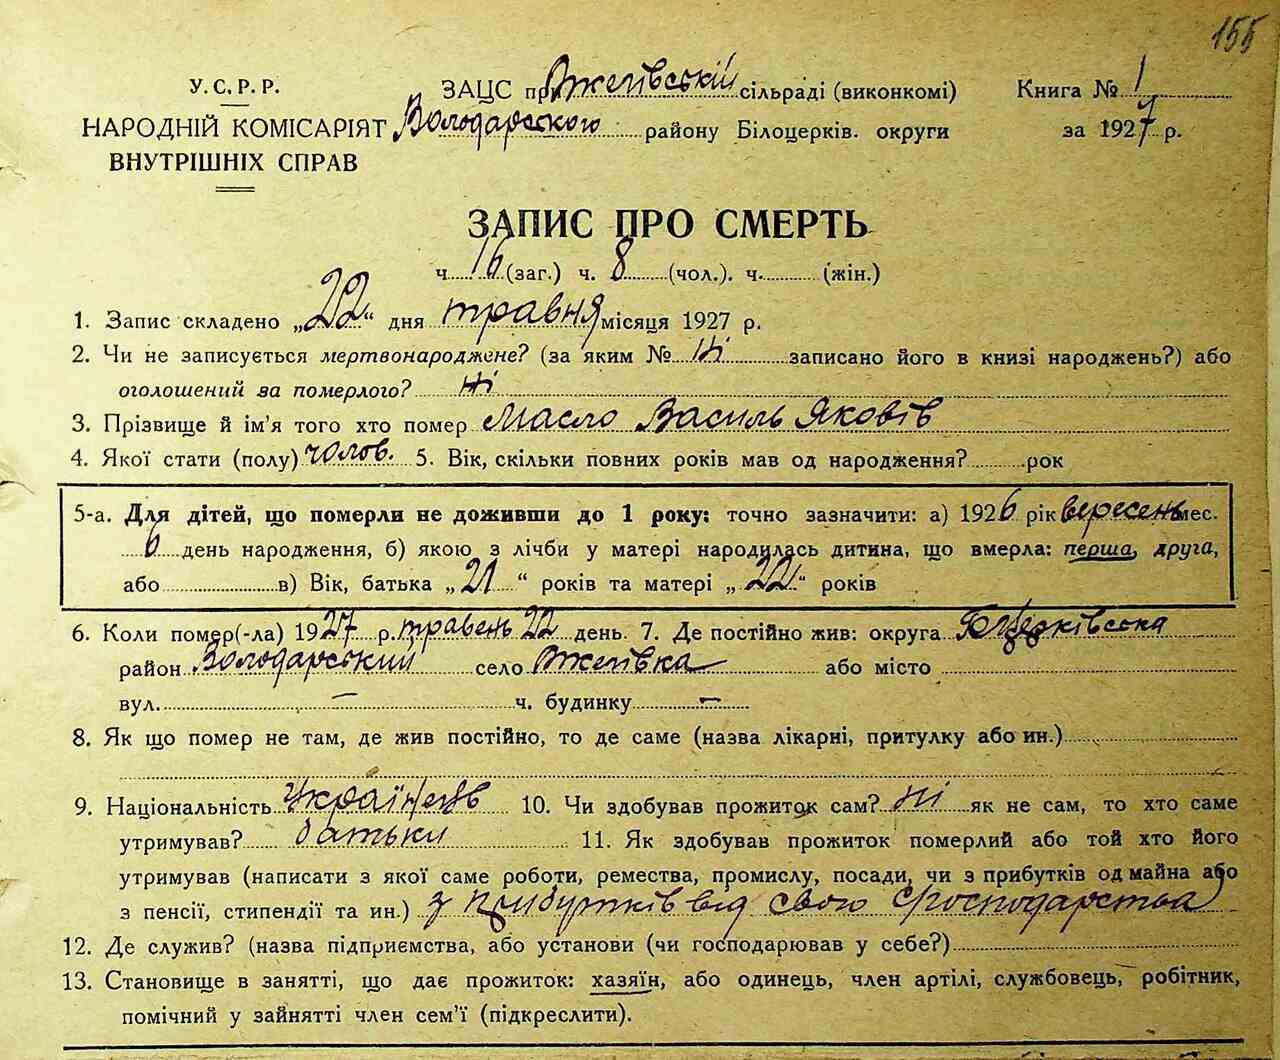 155
У.С.Р.Р.
НАРОДНІЙ КОМІСАРІЯТ
ВНУТРІШНІХ СПРАВ
ЗАЦС при Вжегівській сільраді (виконкомі)
Володарського району Білоцерків. округи
Книга № 1
за 1927 р.
ЗАПИС ПРО СМЕРТЬ
ч. 16 (заг.) ч. 8 (чол.). ч. (жін.)
1. Запис складено „22“ дня травня місяця 1927 р.
2. Чи не записується мертвонароджене? (за яким № ні записано його в книзі народжень?) або
оголошений за померлого? ні
3. Прізвище й ім'я того хто помер Масло Василь Яковів
4. Якої стати (полу) чолов. 5. Вік, скільки повних років мав од народження? рок
5-а. Для дітей, що померли не доживши до 1 року: точно зазначити: а) 1926 рік вересень мес.
6 день народження, б) якою з лічби у матері народилась дитина, що вмерла: перша, друга,
або в) Вік, батька „21“ років та матері „22“ років
6. Коли помер(-ла) 1927 р. травень 22 день. 7. Де постійно жив: округа Б/Церківська
район Володарський село Вжегівка або місто
вул. — ч. будинку —
8. Як що помер не там, де жив постійно, то де саме (назва лікарні, притулку або ин.)
9. Національність Українець 10. Чи здобував прожиток сам? ні як не сам, то хто саме
утримував? батьки 11. Як здобував прожиток померлий або той хто його
утримував (написати з якої саме роботи, ремества, промислу, посади, чи з прибутків од майна або
з пенсії, стипендії та ин.) з прибутків від свого господарства
12. Де служив? (назва підприємства, або установи (чи господарював у себе?)
13. Становище в занятті, що дає прожиток: хазяїн, або одинець, член артілі, службовець, робітник,
помічний у зайнятті член сем'ї (підкреслити).